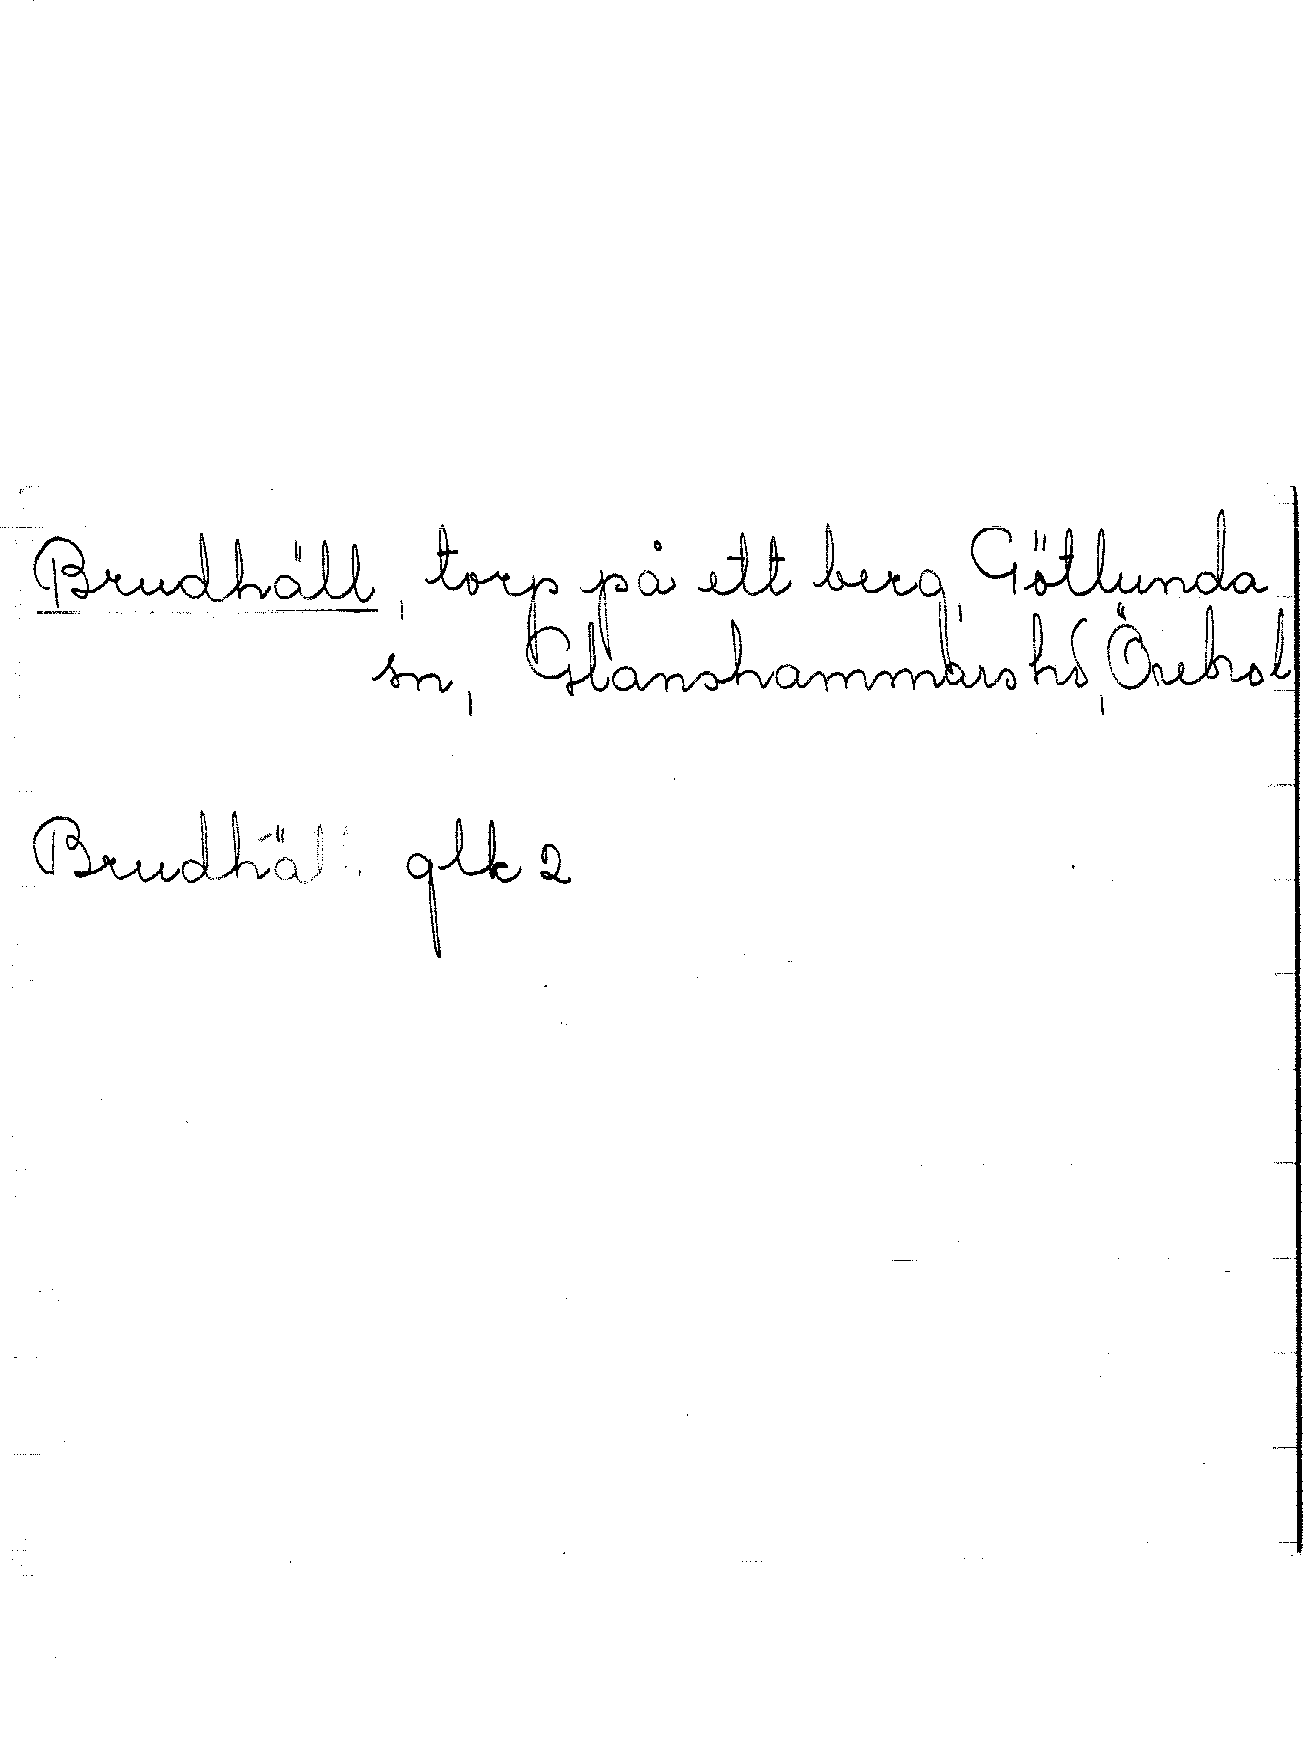 Brudhäll, torp på ett berg, Götlunda
sn, Glanshammars hd, Örebro l
Brudhäll glk 2